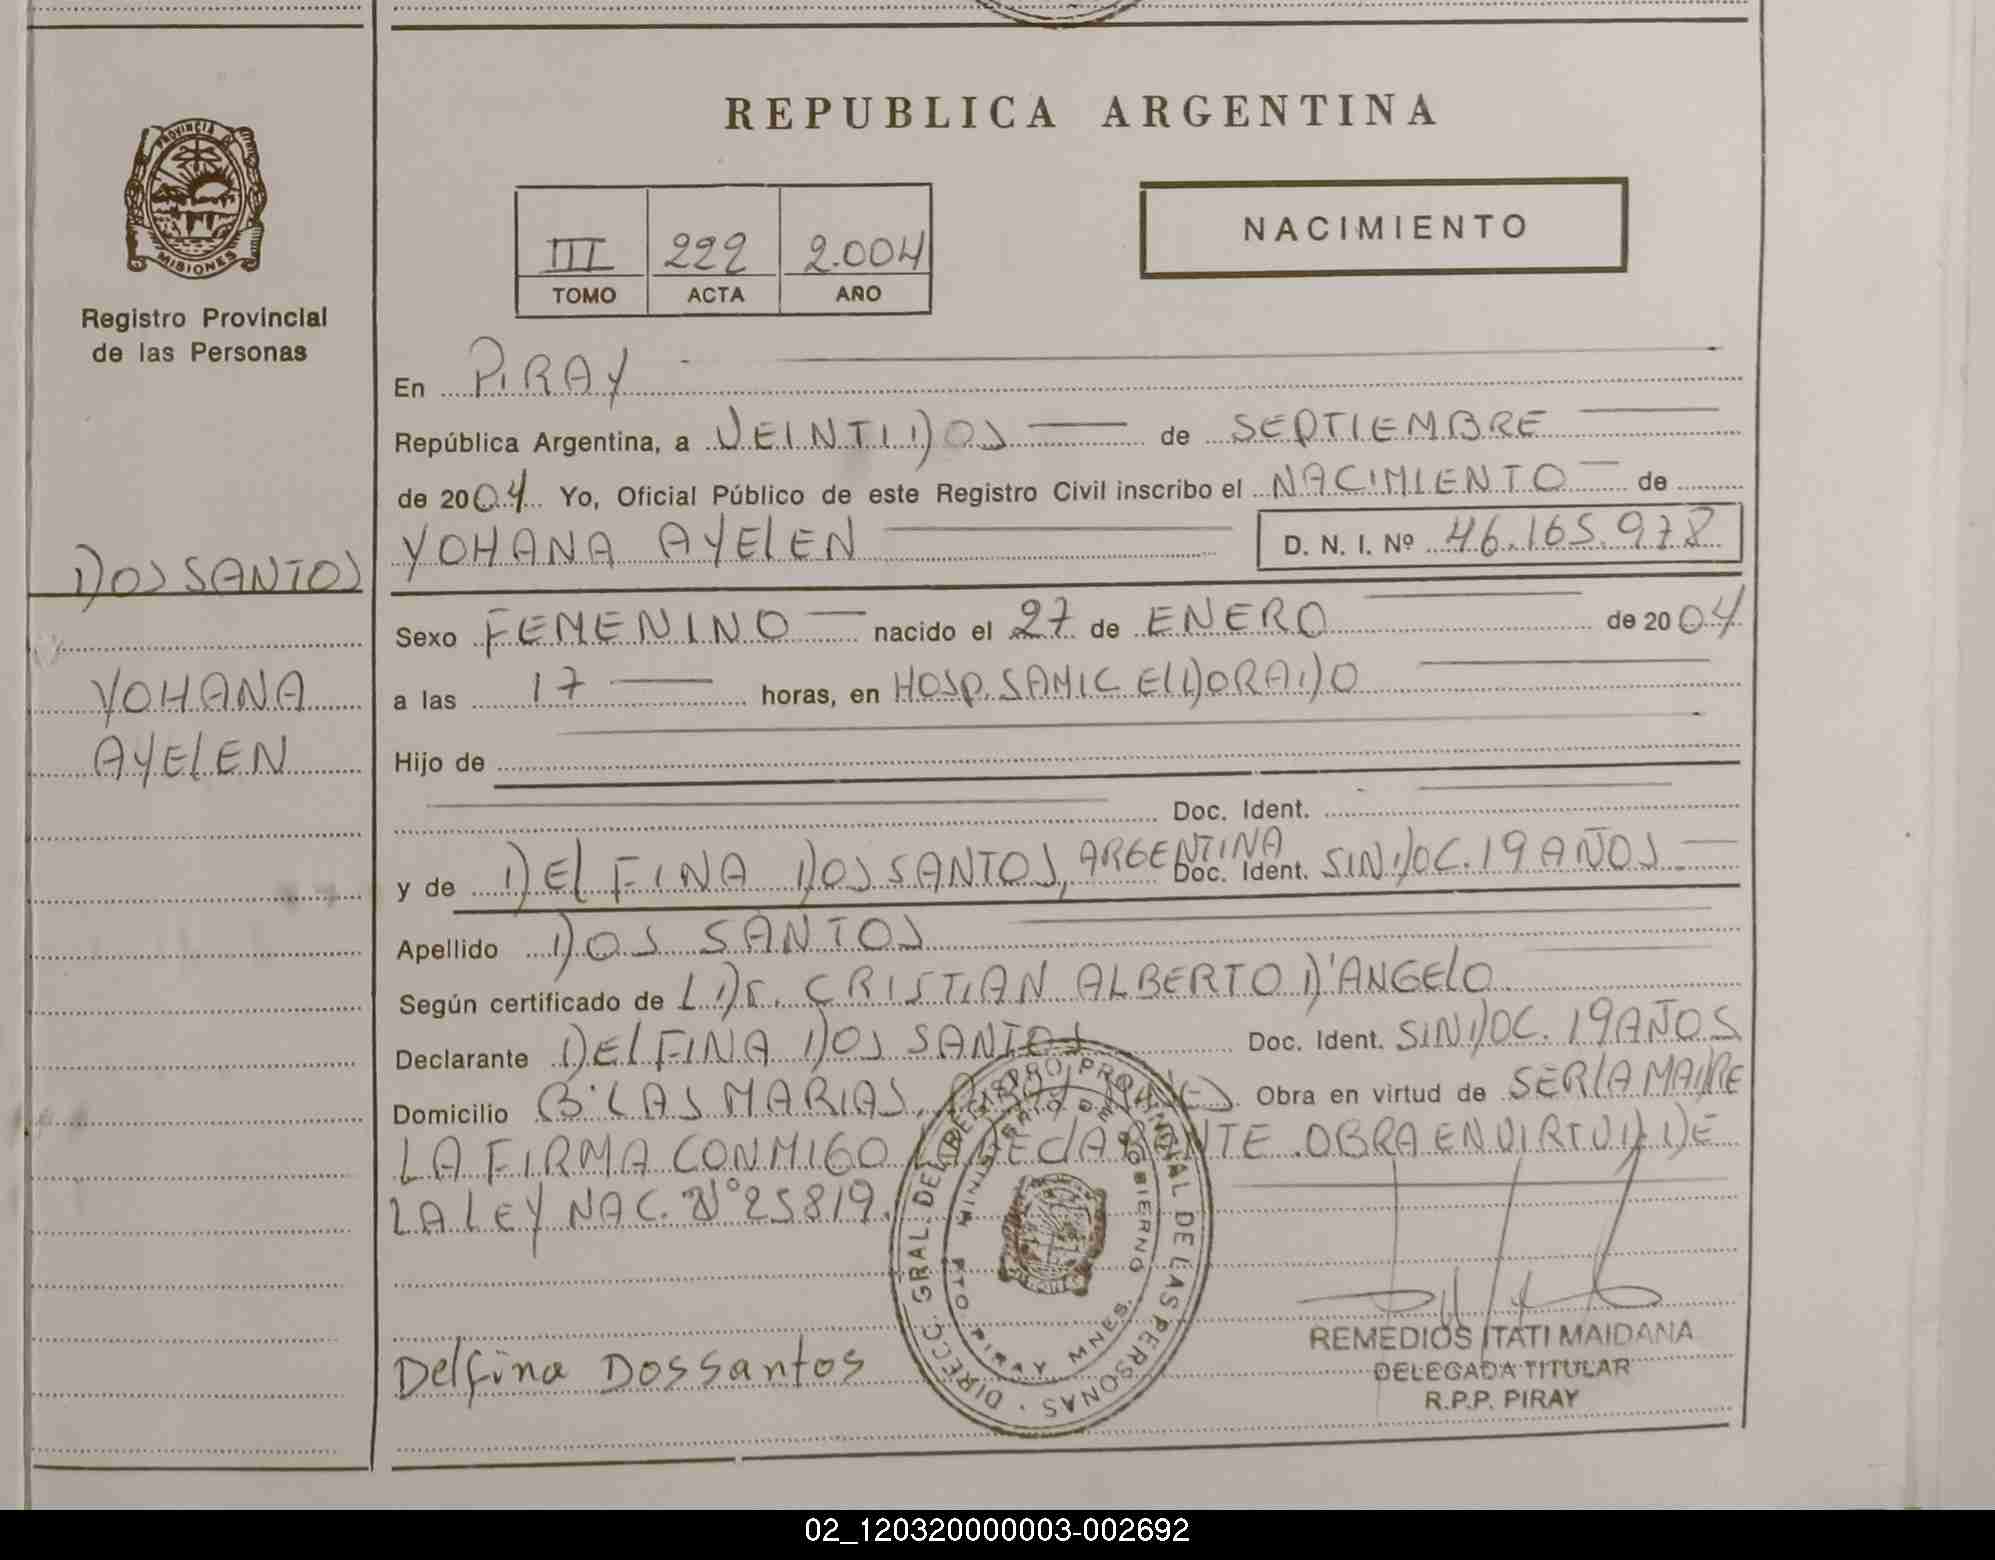 REPUBLICA ARGENTINA
PROVINCIA DE
MISIONES
Registro Provincial
de las Personas
III 222 2.004
TOMO ACTA AÑO
NACIMIENTO
En PIRAY
República Argentina, a VEINTIDOS de SEPTIEMBRE
de 2004 Yo, Oficial Público de este Registro Civil inscribo el NACIMIENTO de
YOHANA AYELEN D. N. I. Nº 46.165.978
DOS SANTOS
YOHANA
AYELEN
Sexo FEMENINO nacido el 27 de ENERO de 2004
a las 17 horas, en HOSP. SAMIC ELDORADO
Hijo de
Doc. Ident.
y de DELFINA DOS SANTOS, ARGENTINA Doc. Ident. SIN DOC. 19 AÑOS
Apellido DOS SANTOS
Según certificado de Dr. CRISTIAN ALBERTO D'ANGELO
Declarante DELFINA DOS SANTOS Doc. Ident. SIN DOC. 19 AÑOS
Domicilio Bº LAS MARIAS, Obra en virtud de SER LA MADRE
LA FIRMA CONMIGO LA DECLARANTE. OBRA EN VIRTUD DE
LA LEY NAC. Nº 25819.
DIRECC. GRAL. DEL REGISTRO PROVINCIAL DE LAS PERSONAS
MINISTERIO DE GOBIERNO
PTO. PIRAY MNES.
Delfina Dossantos
REMEDIOS ITATI MAIDANA
DELEGADA TITULAR
R.P.P. PIRAY
02_120320000003-002692